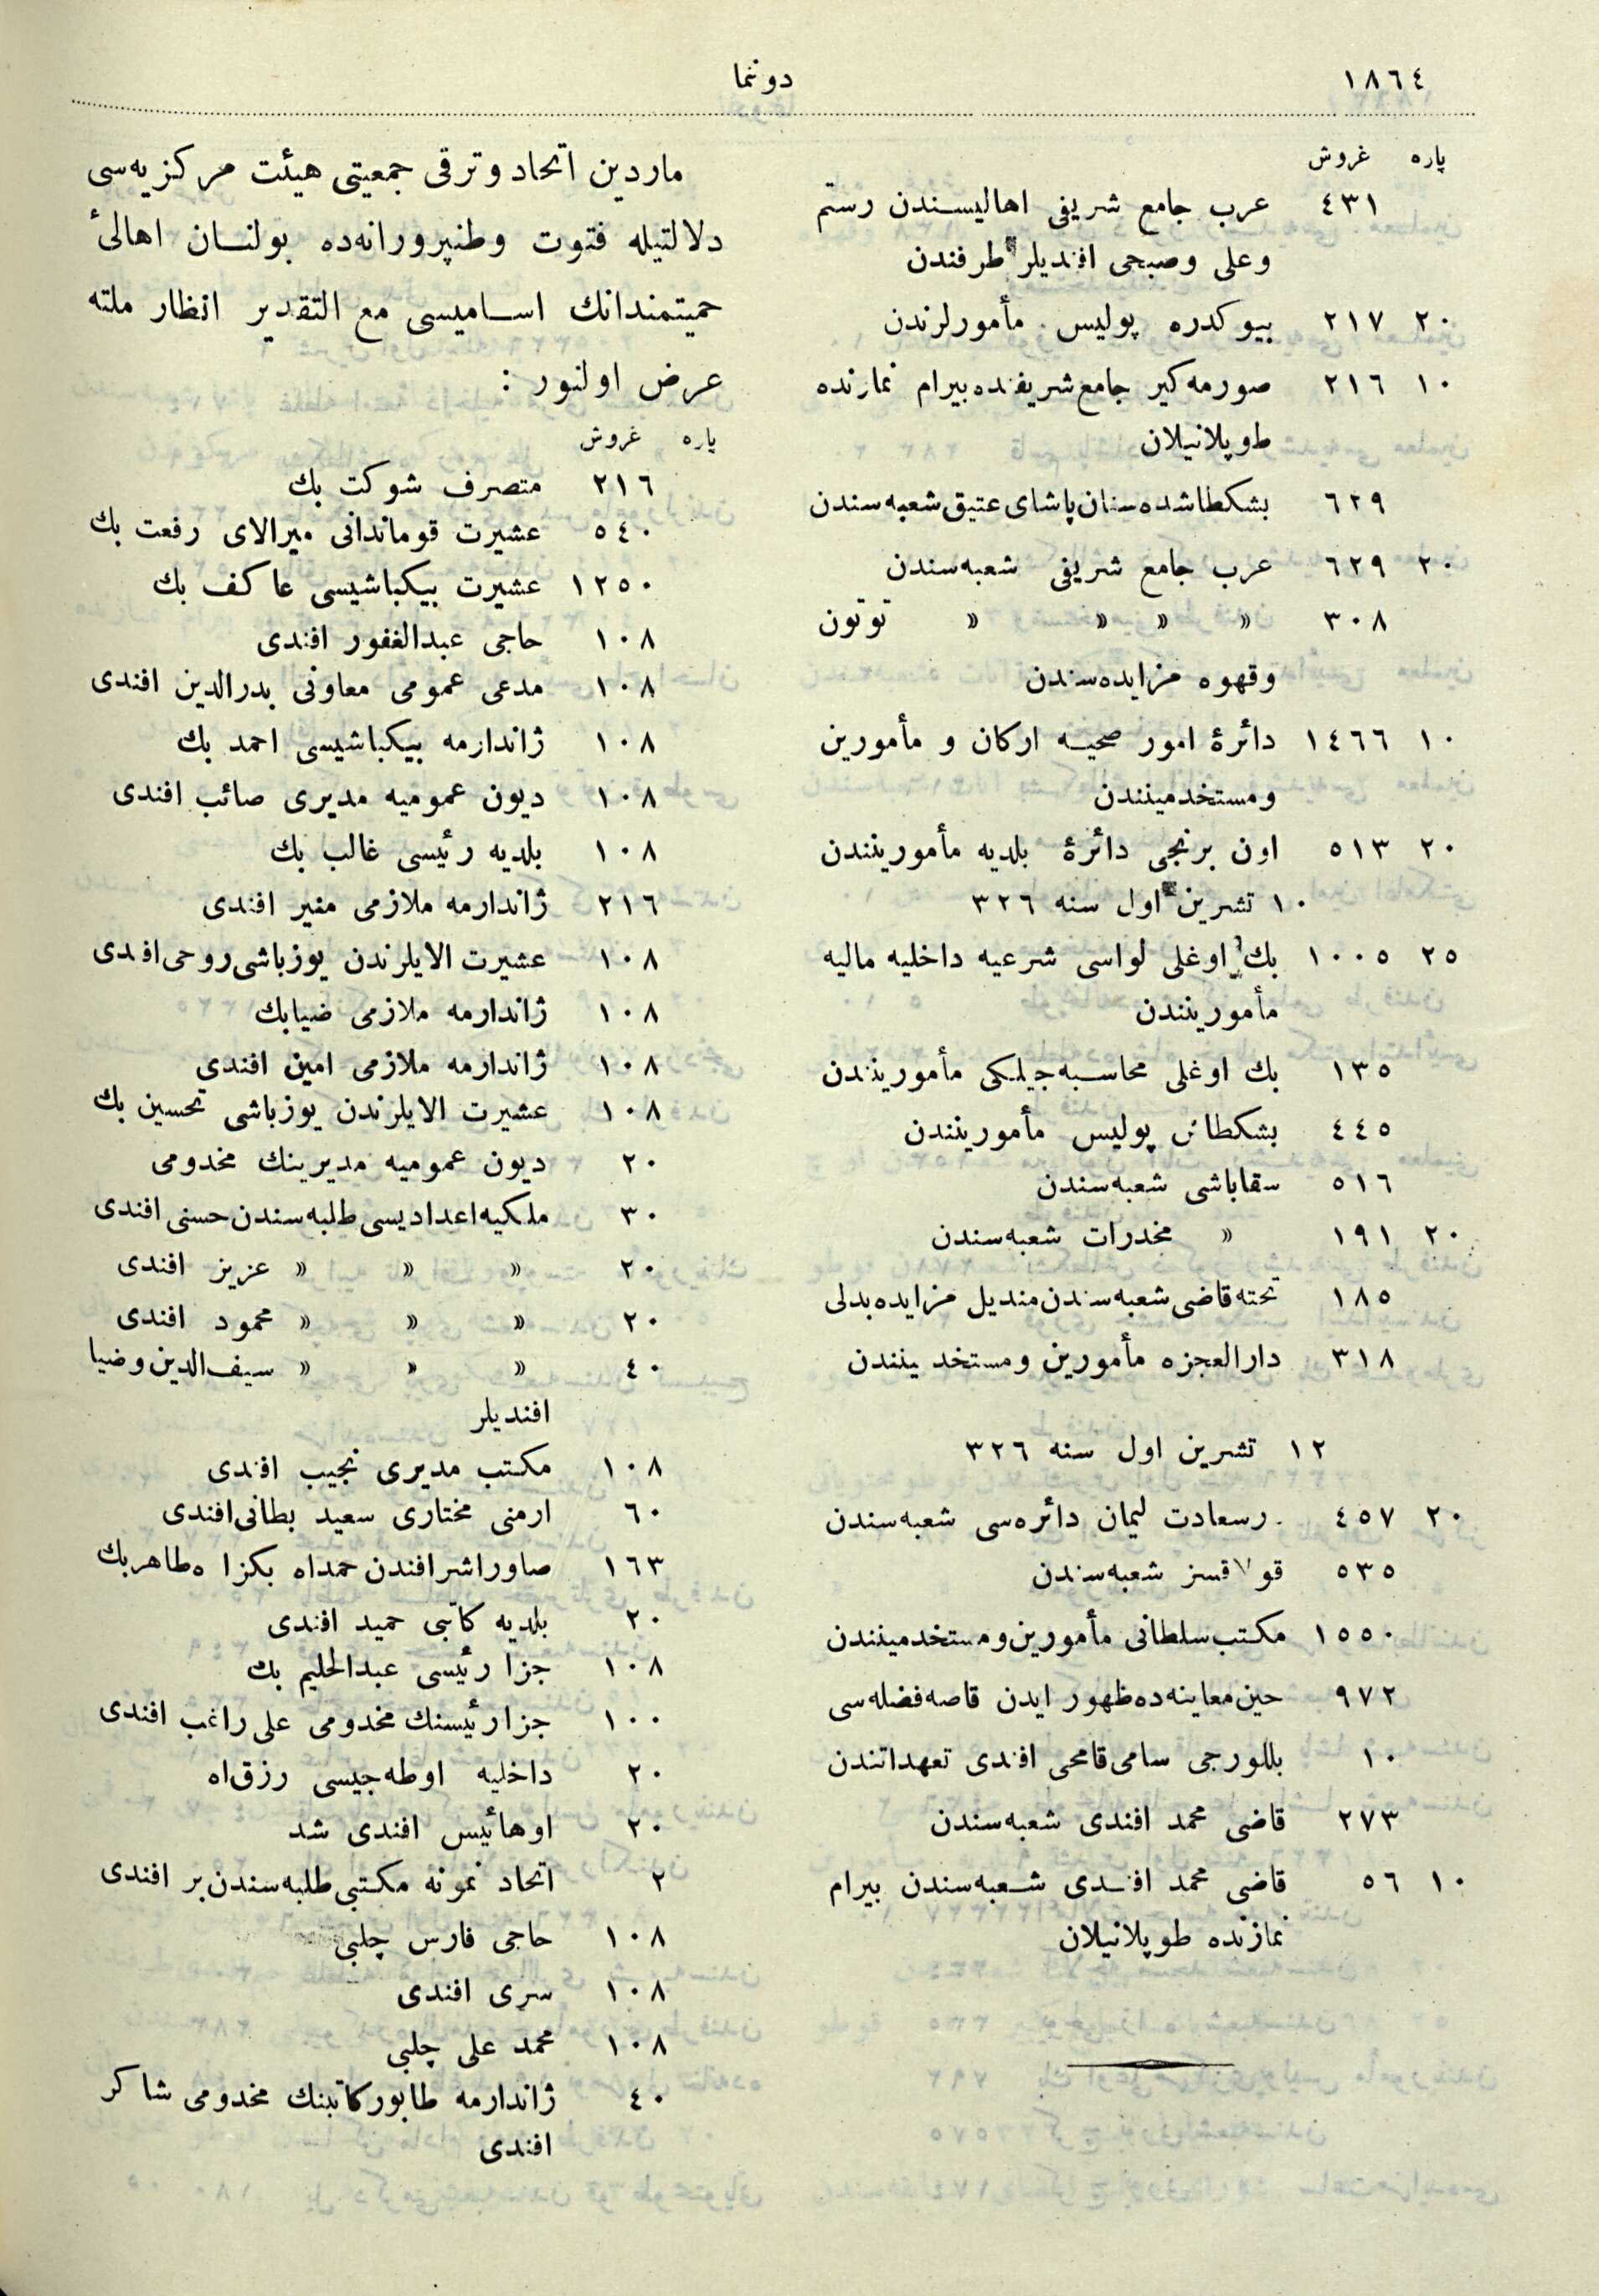 ١٨٦٤
دوننما
پاره غروش
٤٣١ عرب جامع شریفی اهالیسندن رستم
وعلی وصبحی افندیلر طرفندن
٢٠ ٢١٧ بیوكدره پولیس مأمورلرندن
١٠ ٢١٦ صورمه كیر جامع شریفنده بیرام نمازنده
طوپلانیلان
٦٢٩ بشكطاشده سنان پاشای عتیق شعبه سندن
٢٠ ٦٢٩ عرب جامع شریفی شعبه سندن
٣٠٨ » » » » توتون
وقهوه مزایده سندن
١٠ ١٤٦٦ دائرۀ امور صحیه اركان و مأمورین
ومستخدمینندن
٢٠ ٥١٣ اون برنجی دائرۀ بلدیه مأموریننندن
١٠ تشرین اول سنه ٣٢٦
٢٥ ١٠٠٥ بك اوغلی لواسی شرعیه داخلیه مالیه
مأموریننندن
١٣٥ بك اوغلی محاسبه جیلكی مأموریننندن
٤٤٥ بشكطاش پولیس مأموریننندن
٥١٦ سقاباشی شعبه سندن
٢٠ ١٩١ » مخدرات شعبه سندن
١٨٥ تخته قاضی شعبه سندن مندیل مزایده بدلی
٣١٨ دارالعجزه مأمورین ومستخدیننندن
١٢ تشرین اول سنه ٣٢٦
٢٠ ٤٥٧ رسعادت لیمان دائره سی شعبه سندن
٥٣٥ قولاقسز شعبه سندن
١٥٥٠ مكتب سلطانی مأمورین ومستخدمیننندن
٩٧٢ حین معاینه ده ظهور ایدن قاصه فضله سی
١٠ بللورجی سامی قامحی افندی تعهداتندن
٢٧٣ قاضی محمد افندی شعبه سندن
١٠ ٥٦ قاضی محمد افندی شعبه سندن بیرام
نمازنده طوپلانیلان
ماردین اتحاد وترقی جمعیتی هیئت مركزیه سی
دلالتیله فتوت وطنپرورانه ده بولنان اهالئ
حمیتمندانك اسامیسی مع التقدیر انظار ملته
عرض اولنور :
پاره غروش
٢١٦ متصرف شوكت بك
٥٤٠ عشیرت قوماندانی میرالای رفعت بك
١٢٥٠ عشیرت بیكباشیسی عاكف بك
١٠٨ حاجی عبدالغفور افندی
١٠٨ مدعی عمومی معاونی بدرالدین افندی
١٠٨ ژاندارمه بیكباشیسی احمد بك
١٠٨ دیون عمومیه مدیری صائب افندی
١٠٨ بلدیه رئیسی غالب بك
٢١٦ ژاندارمه ملازمی منیر افندی
١٠٨ عشیرت الایلرندن یوزباشی روحی افندی
١٠٨ ژاندارمه ملازمی ضیابك
١٠٨ ژاندارمه ملازمی امین افندی
١٠٨ عشیرت الایلرندن یوزباشی تحسین بك
٢٠ دیون عمومیه مدیرینك مخدومی
٣٠ ملكیه اعدادیسی طلبه سندن حسنی افندی
٢٠ » » » عزیز افندی
٢٠ » » » محمود افندی
٤٠ » » » سیف الدین وضیا
افندیلر
١٠٨ مكتب مدیری نجیب افندی
٦٠ ارمنی مختاری سعید بطانی افندی
١٦٣ صاوراشرافندن حمداه بكزاده طاهربك
٢٠ بلدیه كاتبی حمید افندی
١٠٨ جزا رئیسی عبدالحلیم بك
١٠٠ جزا رئیسنك مخدومی علی راغب افندی
٢٠ داخلیه اوطه جیسی رزق اه
٢٠ اوهائیس افندی شد
٢ اتحاد نمونه مكتبی طلبه سندن بر افندی
١٠٨ حاجی فارس چلبی
١٠٨ سری افندی
١٠٨ محمد علی چلبی
٤٠ ژاندارمه طابور كاتبنك مخدومی شاكر
افندی